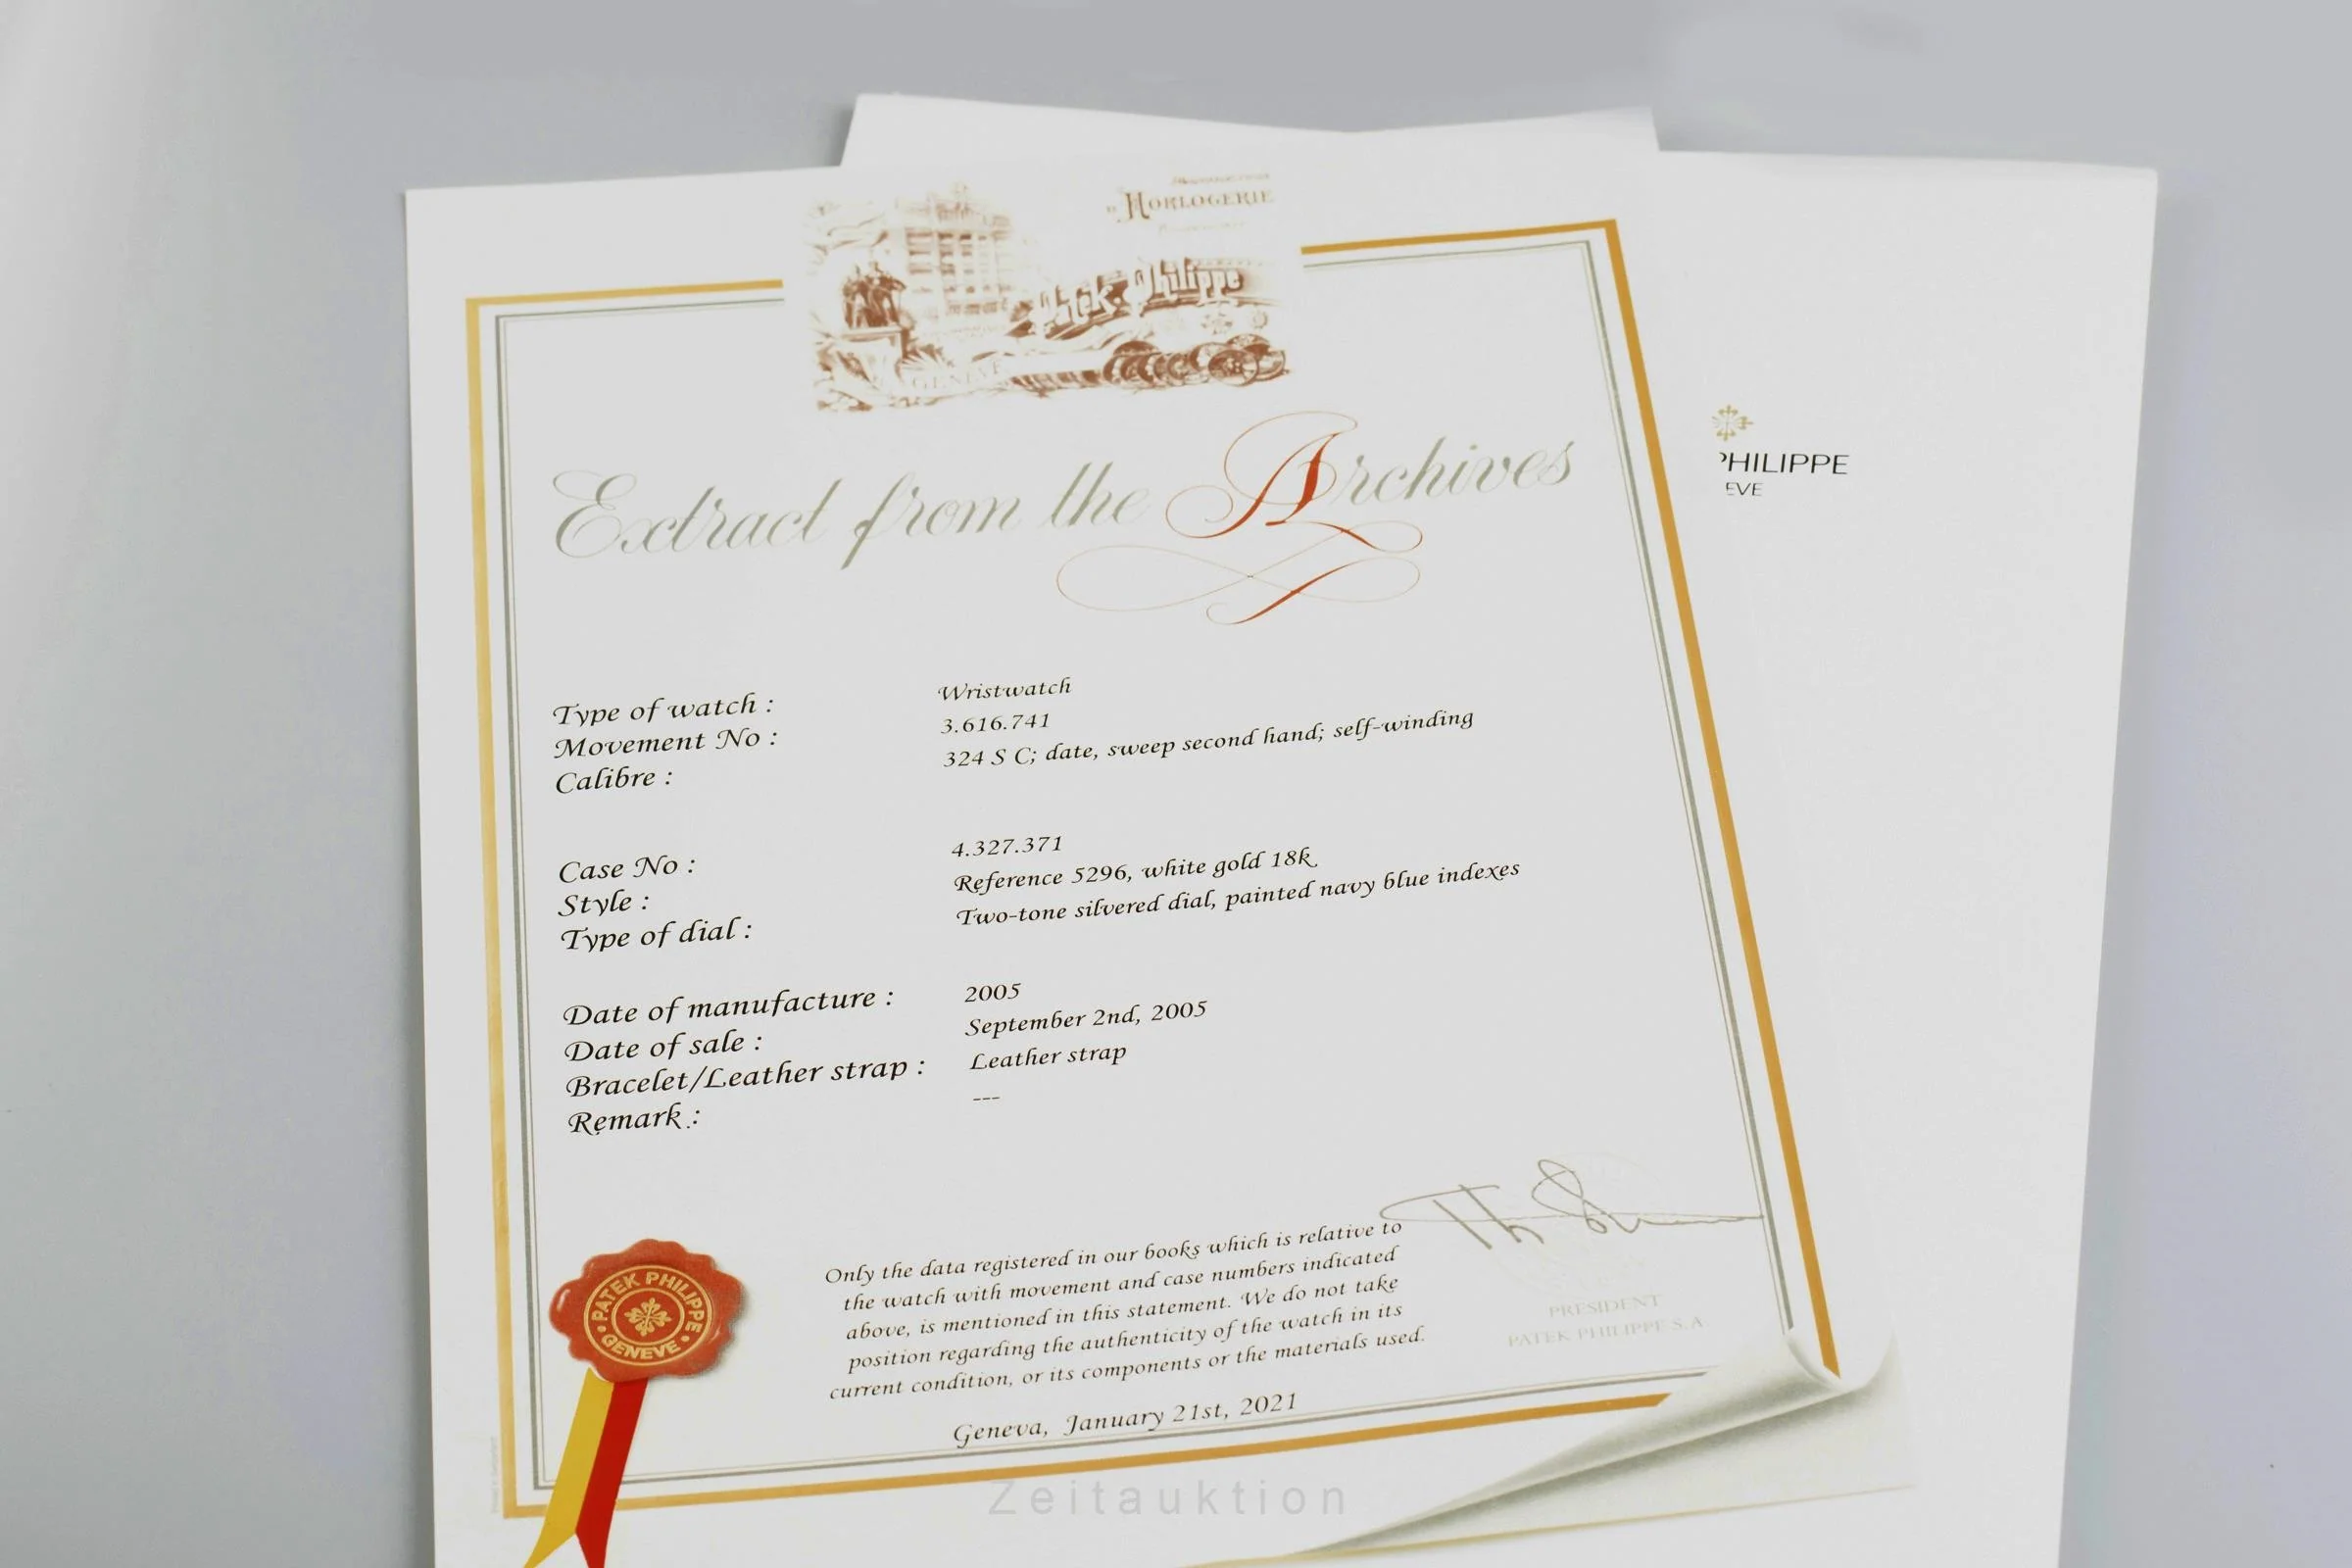 HORLOGERIE
Patek. Philippe
GENÈVE
Extract from the Archives
PHILIPPE
EVE
Type of watch : Wristwatch
Movement No : 3.616.741
Calibre : 324 S C; date, sweep second hand; self-winding
Case No : 4.327.371
Style : Reference 5296, white gold 18k.
Type of dial : Two-tone silvered dial, painted navy blue indexes
Date of manufacture : 2005
Date of sale : September 2nd, 2005
Bracelet/Leather strap : Leather strap
Remark : ---
Only the data registered in our books which is relative to
the watch with movement and case numbers indicated
above, is mentioned in this statement. We do not take
position regarding the authenticity of the watch in its
current condition, or its components or the materials used.
Geneva, January 21st, 2021
PRESIDENT
PATEK PHILIPPE S.A.
PATEK PHILIPPE
GENEVE
Zeitauktion